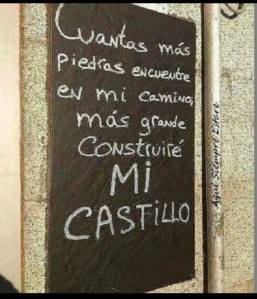 Cuantas más
piedras encuentre
en mi camino,
más grande
construiré
MI
CASTILLO
Aquí Siempre Estaré